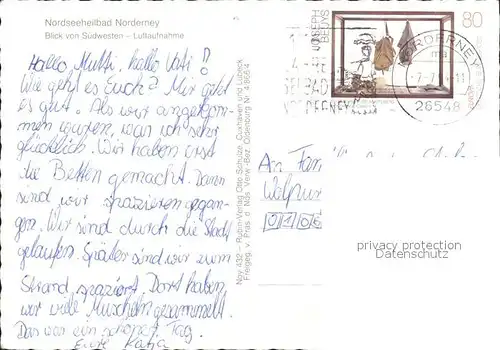 Nordseeheilbad Norderney
Blick von Südwesten – Luftaufnahme
Hallo, Mutti, hallo Vati!
Wie geht es Euch? Mir geht
es gut. Als wir angekom-
men waren, war ich sehr
glücklich. Wir haben erst
die Betten gemacht. Dann
sind wir spazieren gegan-
gen. Wir sind durch die Stadt
gelaufen. Später sind wir zum
Strand spaziert. Dort haben
wir viele Muscheln gesammelt.
Das war ein schöner Tag.
Eure Katja
Rubin-Verlag Otto Schulze, Cuxhaven und Lübeck
Freigeg. v. Präs. d. Nds. Verw.-Bez. Oldenburg Nr.
JOSEPH
BEUYS
80
NORDERNEY
26548
An Fam
Walpur
privacy protection
Datenschutz